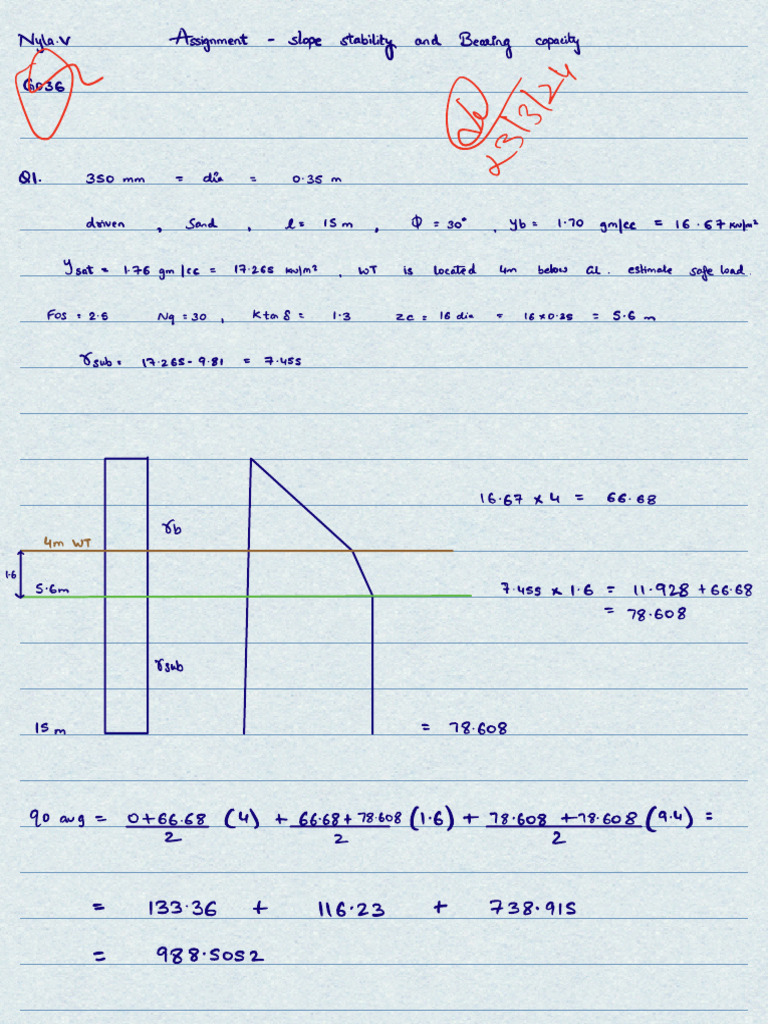 Nyla.V Assignment - slope stability and Bearing capacity
G036
23/3/24
Q1. 350 mm = dia = 0.35 m
driven , Sand , l = 15 m , Φ = 30° , yb = 1.70 gm/cc = 16.67 KN/m²
γsat = 1.76 gm/cc = 17.265 KN/m² , WT is located 4m below GL. estimate safe load.
FOS = 2.5 Nq = 30 , K tan δ = 1.3 zc = 16 dia = 16 x 0.35 = 5.6 m
γsub = 17.265 - 9.81 = 7.455
16.67 x 4 = 66.68
γb
4m WT
1.6
5.6m
7.455 x 1.6 = 11.928 + 66.68
= 78.608
γsub
15 m
= 78.608
q0 avg = 0+66.68/2 (4) + 66.68+78.608/2 (1.6) + 78.608 +78.608/2 (9.4) =
= 133.36 + 116.23 + 738.915
= 988.5052